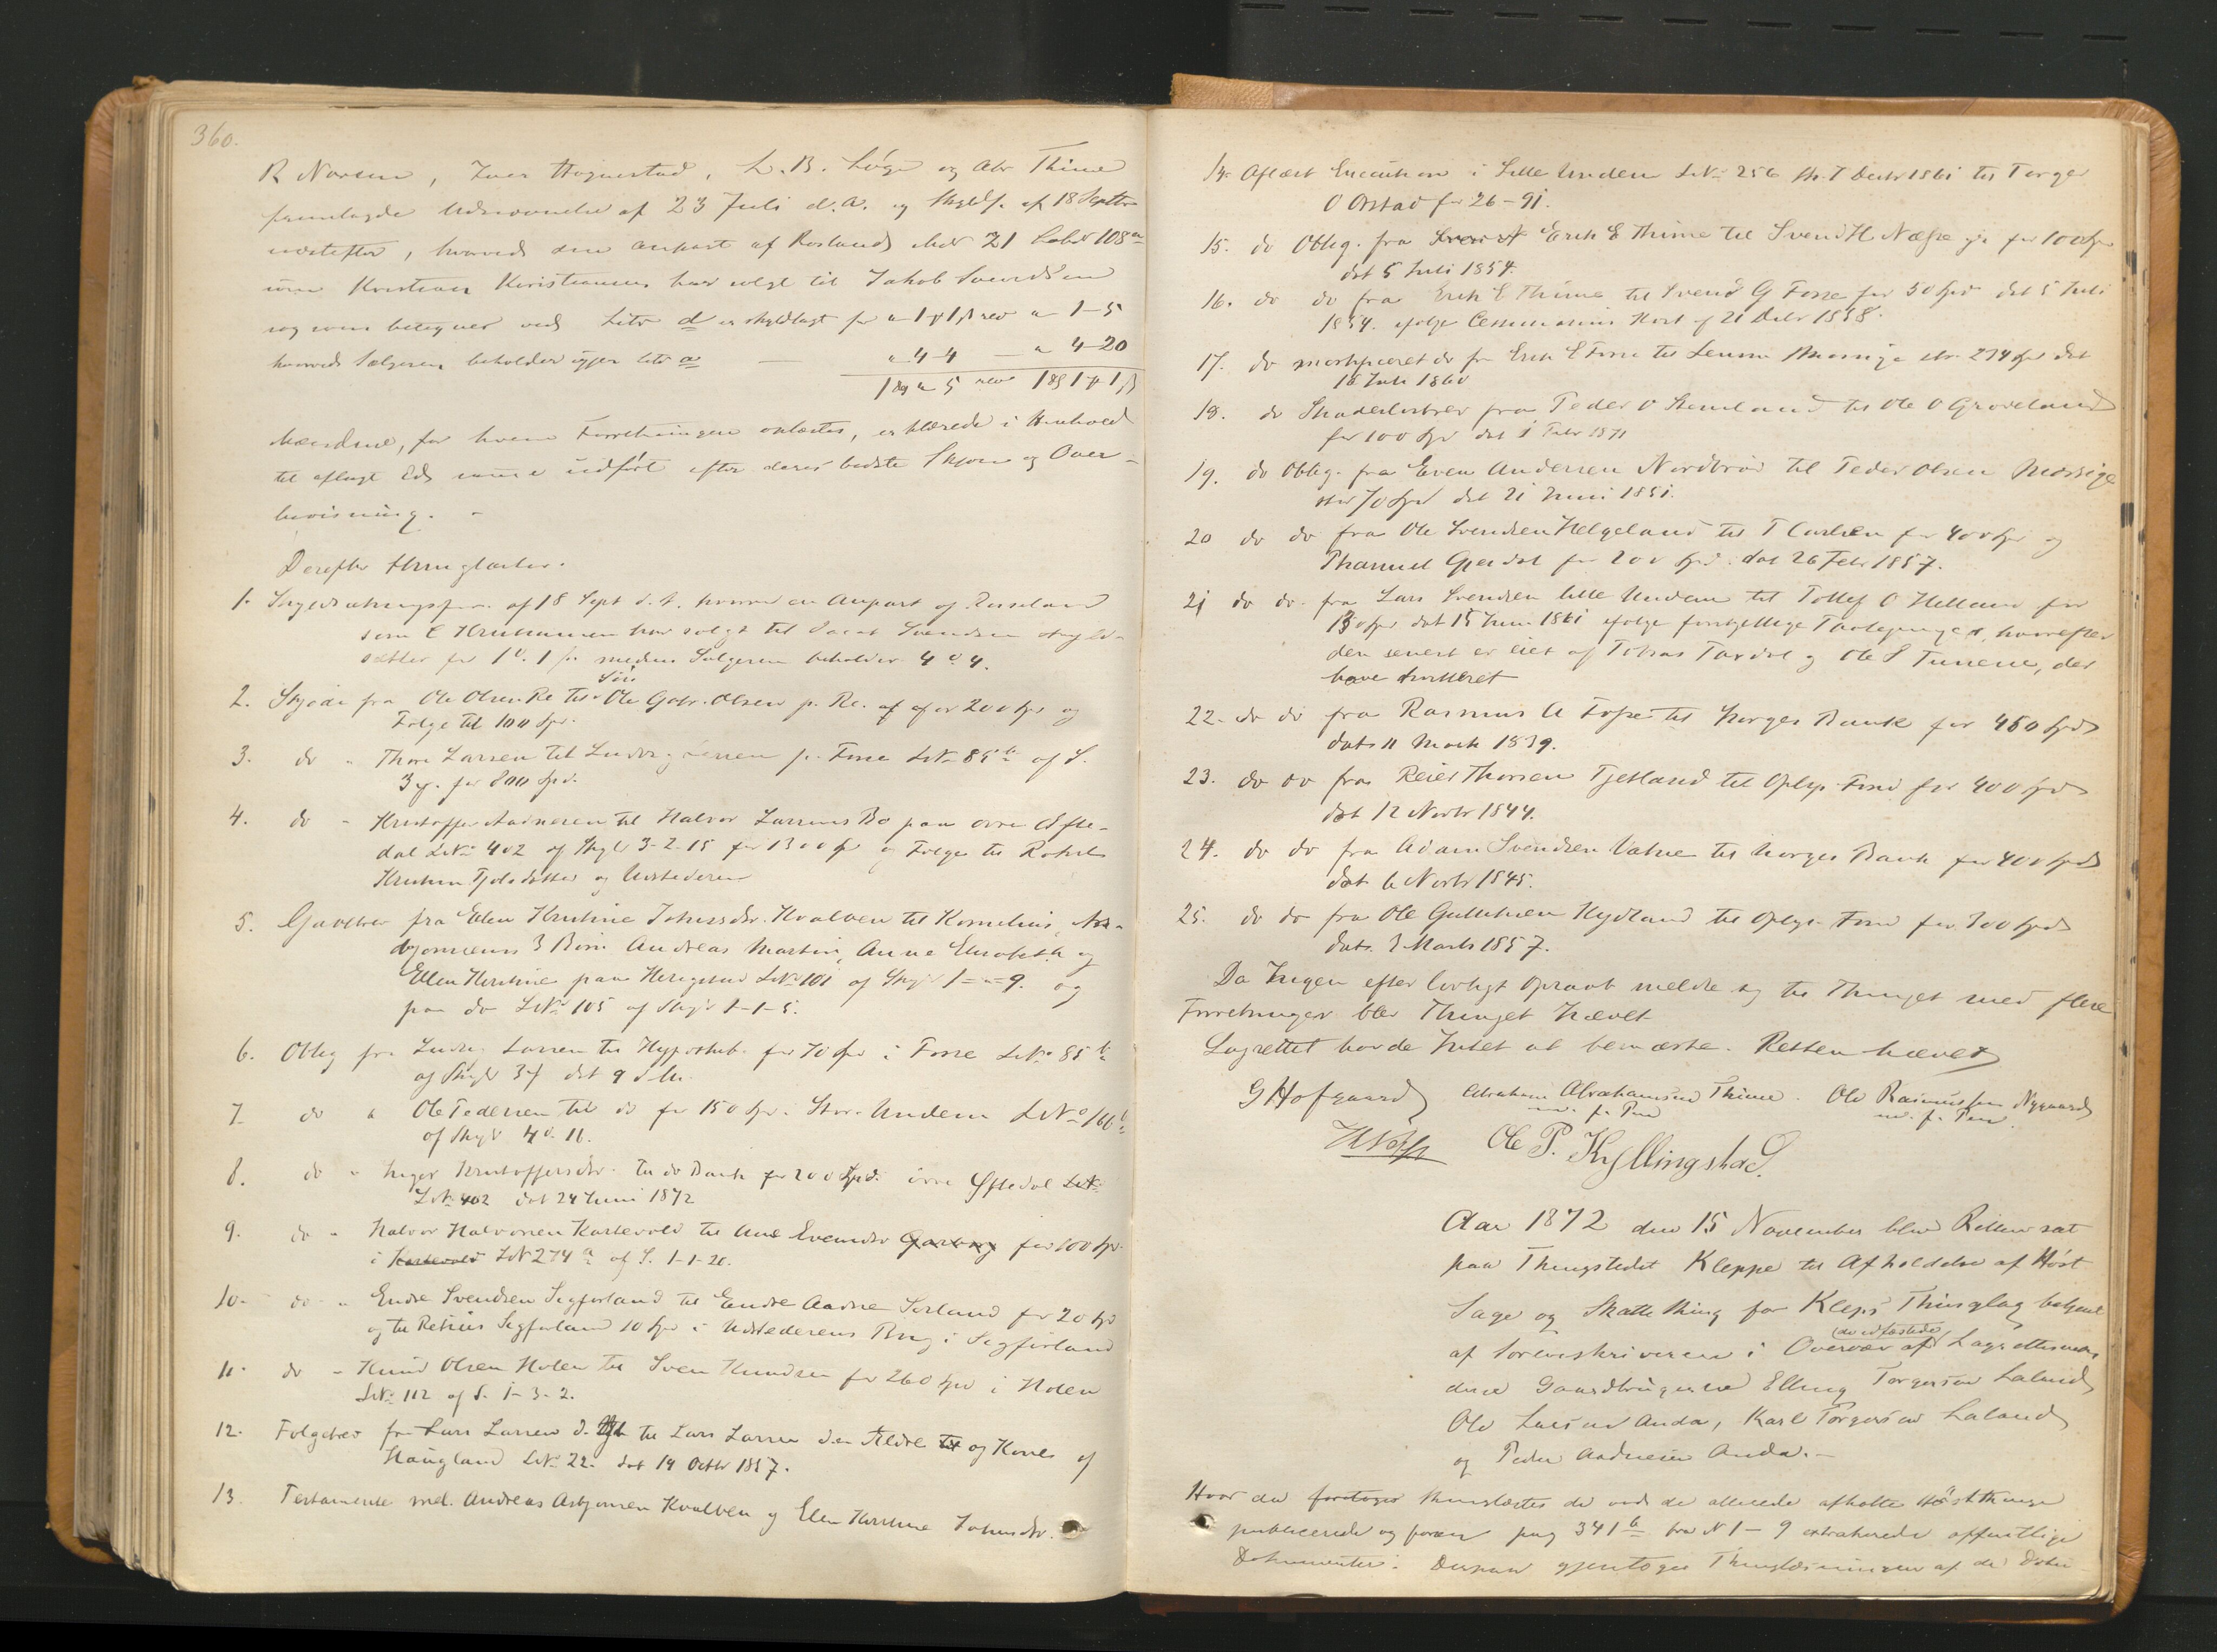 360.
R Narsen, Iver Hognestad, L. B. Løge og Abr Thime
fremlagde Udnævnelse af 23 Juli d. A. og Skyldf. af 18 Septbr
næstefter, hvorved den anpart af Roslands
som Kristian Kristiansen har solgt til Jakob Svendsen
og som betegnes ved Litr d er skyldlagt for 1 1 rev 1-5
hvorved Sælgeren beholder igjen litr a — " 4-4 — " 4-20
5 rev
Mændene, for hvem Forretningen oplæstes, erklærede i Henhold
til aflagt Ed samme udført efter deres bedste Skjøn og Over-
bevisning. -
Derefter thinglæstes.
1. af 18 Sept d. A. hvorved en Anpart af Rosseland
som C Kristiansen har solgt til Jacob Svendsen skyld-
sættes for 1 medens Sælgeren beholder 4 " 4.
2. Skjøde fra Ole Olsen Re til Søn Ole Gabr. Olsen p. Re. for 200 Spd og
Folge til 100 Spd.
3. do " Thore Larsen til Ludvig Larsen p. Fosse LNo 85 b af S.
3 for 800 Spd.
4. do " Kristoffer Aadnesen til Halvor Larsens Bo paa øvre Øfste-
dal LNo 402 af Skyld 3-2-15 for 1300 Spd og Folge til
Kristen og Udstederen
5. Gavebrev fra Elen Kristine Johnsdr. Kvalven til Kornelius As-
bjørnsens 3 Børn Andreas Martin, Anne Elisabeth og
Ellen Kristine paa LNo 101 af Skyld 1-"-9. og
paa do LNo 105 af Skyld 1-1-5.
6. Oblig fra Ludvig Larsen til Hypothekb. for 70 Spd i Fosse LNo 85 b
af Skyld 3 dat 9 d. M.
7. do " Ole Pedersen til do for 150 Spd. Store Undem LNo 166
af Skyld 4 " 11.
8. do " Inger Kristoffersdr. til do Bank for 200 Spd. i øvre Øfstedal
LNo 402 dat 24 Juni 1872
9. do " Halvor Halvorsen Kartevold til Ane Svendsdr Garborg for 100 Spd
i Kartevold LNo 274 a af S. 1-1-20.
10. do " Endre Svendsen Sigfarland til Endre Aadne Serland for 20 Spd
og til Reinert Sigfarland 10 Spd i Udstederens Brug i Sigfarland
11. do " Knud Olsen Holen til Sven Knudsen for 260 Spd i Holen
LNo 112 af S. 1-3-2.
12. Folgebrev fra Lars Larsen d. til Lars Larsen den Ældre og Kones af
Haugland LNo 22. dat 14 Octbr 1857.
13. Testamente mel. Andreas Asbjørnsen Kvalven og Elen Kirstine Johnsdr.
14. Aflæst Execution i Lille Undem LNo 256 1861 til Torger
O Orstad for 26-91.
15. do Oblig. fra Erik E Thime til Svend H Næsse for 100 Spd
dat 5 Juli 1854.
16. do do fra Erik E Thime til Svend G Fosse for 50 Spd dat 5 Juli
1854. ifølge Cessions af 21 1858.
17. do mortificeret do fra Erik E Fosse til Mossige str. 274 Spd dat
18 Juli 1860
18. do Skadesløsbrev fra Peder O til Ole O Groveland
for 100 Spd dat 1 Febr 1871
19. do Oblig. fra Even Andersen Nordbrød til Peder Olsen Mossige
str 70 Spd dat 21 Juni 1851.
20 do do fra Ole Svendsen Helgeland til T Carlsen for 400 Spd og
Gjesdal for 200 Spd. dat 26 Febr 1857.
21 do do. fra Lars Svendsen lille Undem til Tollef O Helland for
Spd dat 15 Juni 1861 ifølge forskjellige Paategninger, hvorefter
den senest er eiet af Tobias Taxdal og Ole S Tunene, der
have kvitteret
22. do do fra Rasmus A Fosse til Norges Bank for 450 Spd
dat. 11 March 1839.
23. do do fra Reier Thorsen Tjetland til Oplys. Fond for 400 Spd
dat 12 Novbr 1844.
24. do do fra Adam Svendsen Vatne til Norges Bank for 400 Spd
dat 6 Novbr 1845.
25. do do fra Ole Gulliksen Hydland til Oplys. Fond for 300 Spd
dat. 3 Marts 1857.
Da Ingen efter lovligt Opraab meldte sig til Thinget med flere
Forretninger blev Thinget hævet
Lagrettet havde Intet at bemærke. Retten hævet
G Hofgaard Abraham Abrahamsen Thime. Ole Rasmussen Nygaard
m. f. Pen m. f. Pen.
Ole P. Kyllingstad.
Aar 1872 den 15 November blev Retten sat
paa Thingstedet Kleppe til Afholdelse af Høst
Sage og Skatte thing for Kleps Thinglag betjent
af Sorenskriveren i Overvær af (de edfæstede) Lagrettesmæn
dene Gaardbrugerne Elling Torgersen Laland
Ole Larsen Anda, Karl Torgersen Laland
og Peder Aadnesen Anda.-
Hvor da foretoges thinglæstes de ved de allerede afholdte Høstthinge
publicerede og foran pag 341 b fra N 1-9 extraherede offentlige
Dokumenter. Derpaa gjentoges Thinglæsningen af de Doku-